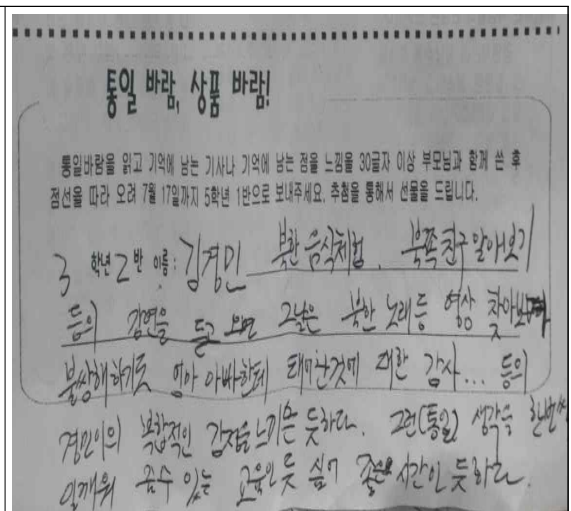 통일 바람, 상품 바람!
통일바람을 읽고 기억에 남는 기사나 기억에 남는 점을 느낌을 30글자 이상 부모님과 함께 쓴 후
점선을 따라 오려 7월 17일까지 5학년 1반으로 보내주세요. 추첨을 통해서 선물을 드립니다.
3 학년 2 반 이름 : 김경민 북한 음식체험, 북쪽친구 알아보기
등의 강연을 듣고 오면 그날은 북한 노래등 영상 찾아보며
불쌍해하기도 엄마 아빠한테 태어난것에 대한 감사... 등의
경민이의 복합적인 감정을 느끼는 듯하다. 그런(통일) 생각을 한번씩
일깨워 줄수 있는 교육인 듯 싶어 좋은 시간인 듯하다.